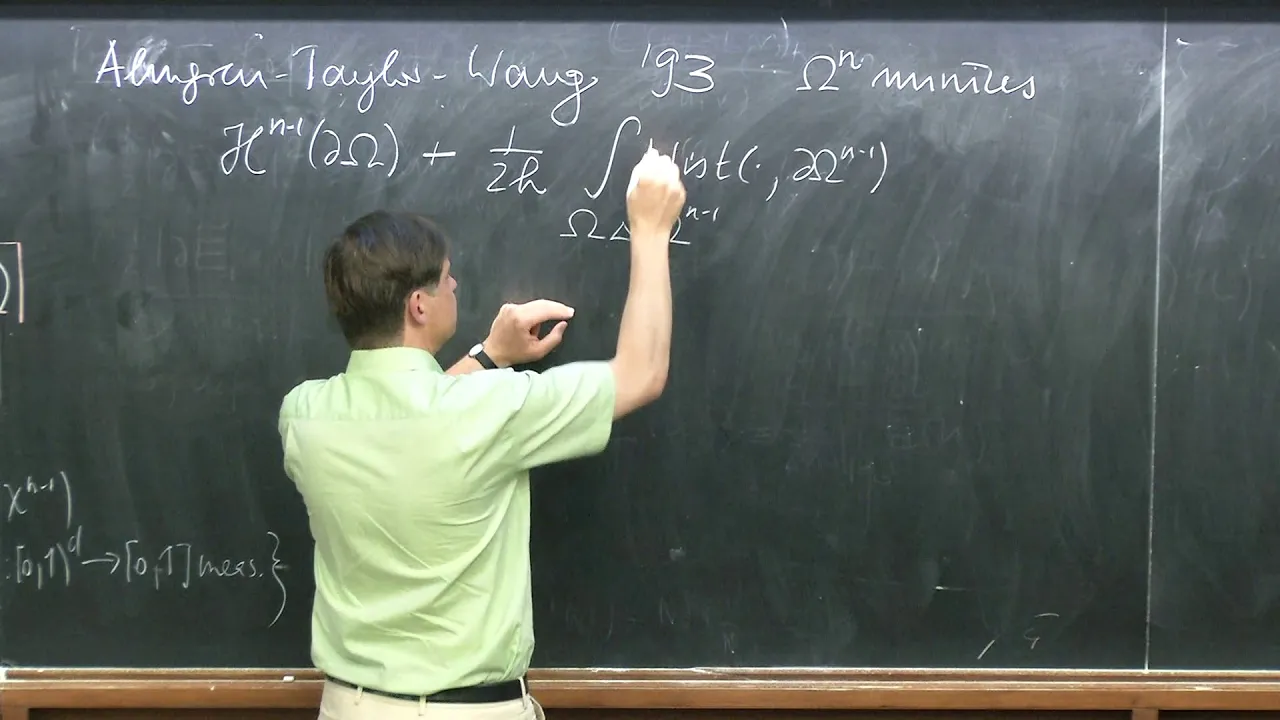 Almgren-Taylor-Wang, '93 Ωⁿ minimizes
ℋⁿ⁻¹(∂Ω) + 1/2h ∫ dist(·, ∂Ωⁿ⁻¹)
Ω△Ωⁿ⁻¹
χⁿ⁻¹)
: [0,1)ᵈ → [0,1] meas. }